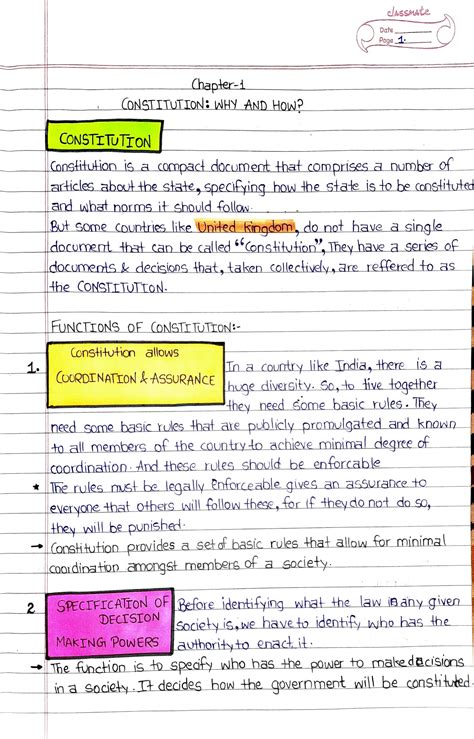 classmate
Date
Page 1.
Chapter-1
CONSTITUTION: WHY AND HOW?
CONSTITUTION
Constitution is a compact document that comprises a number of
articles about the state, specifying how the state is to be constituted
and what norms it should follow.
But some countries like United Kingdom, do not have a single
document that can be called "Constitution", They have a series of
documents & decisions that, taken collectively, are reffered to as
the CONSTITUTION.
FUNCTIONS OF CONSTITUTION:-
1. Constitution allows
COORDINATION & ASSURANCE
In a country like India, there is a
huge diversity. So, to live together
they need some basic rules. They
need some basic rules that are publicly promulgated and known
to all members of the country to achieve minimal degree of
coordination. And these rules should be enforcable
* The rules must be legally enforceable gives an assurance to
everyone that others will follow these, for if they do not do so,
they will be punished.
→ Constitution provides a set of basic rules that allow for minimal
coordination amongst members of a society.
2 SPECIFICATION OF
DECISION
MAKING POWERS
Before identifying what the law in any given
society is, we have to identify who has the
authority to enact it.
→ The function is to specify who has the power to make decisions
in a society. It decides how the government will be constituted.